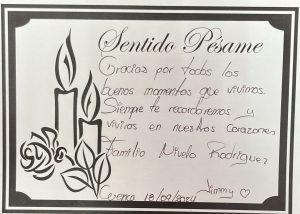 Sentido Pésame
Gracias por todos los
buenos momentos que vivimos.
Siempre te recordaremos y
viviras en nuestros corazones
Familia Nivelo Rodriguez
Jimmy ♡
Cuenca 18/09/2024